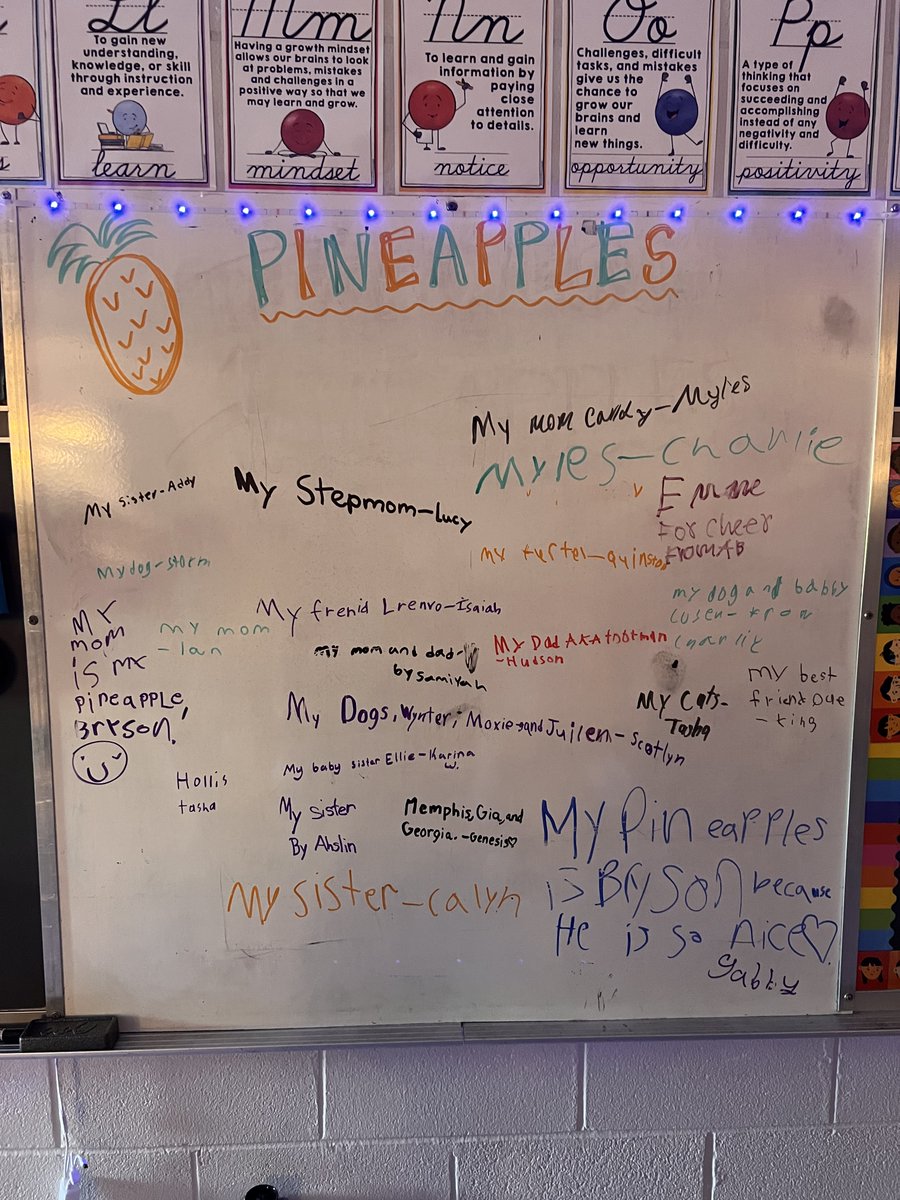 Ll
To gain new
understanding,
knowledge, or skill
through instruction
and experience.
learn
Mm
Having a growth mindset
allows our brains to look
at problems, mistakes
and challenges in a
positive way so that we
may learn and grow.
mindset
Nn
To learn and gain
information by
paying
close
attention
to details.
notice
Oo
Challenges, difficult
tasks, and mistakes
give us the
chance to
grow our
brains and
learn
new things.
opportunity
Pp
A type of
thinking that
focuses on
succeeding and
accomplishing
instead of any
negativity and
difficulty.
positivity
PINEAPPLES
My mom candy-Myles
Myles-Charlie
My Sister-Addy
My Stepmom-Lucy
Emme
For cheer
FROM AB
my turtel-quinston
My dog-storm
my dog and babby
cusen-from
Charlie
My frenid Lrenvo-Isaiah
MY
mom
is my
pineapple,
Bryson,
my mom
-Ian
my mom and dad-
by Samiyah
My Dad AKA footman
-Hudson
my best
friend Oue
-king
My Cats-
Tasha
My Dogs, Wynter, Moxie, and Juilen-Scotlyn
My baby sister Ellie-Karina
W.
Hollis
tasha
My sister
By Ahslin
Memphis, Gia, and
Georgia. -Genesis♡
My Pineapples
is Bryson because
He is so Nice♡
Gabby
My sister-calyn